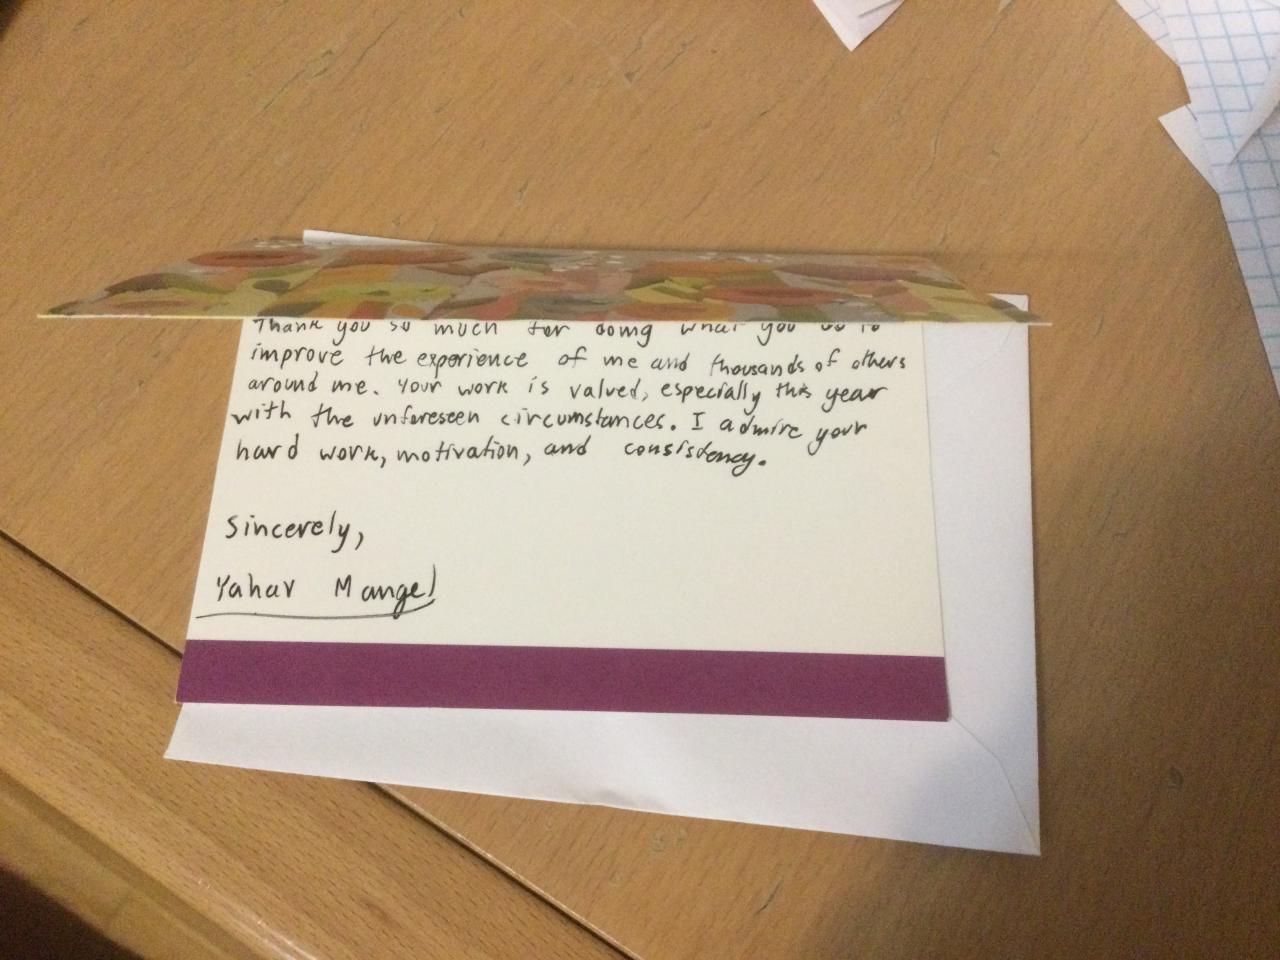 Thank you so much for doing what you do to
improve the experience of me and thousands of others
around me. Your work is valued, especially this year
with the unforeseen circumstances. I admire your
hard work, motivation, and consistency.
Sincerely,
Yahav Mangel